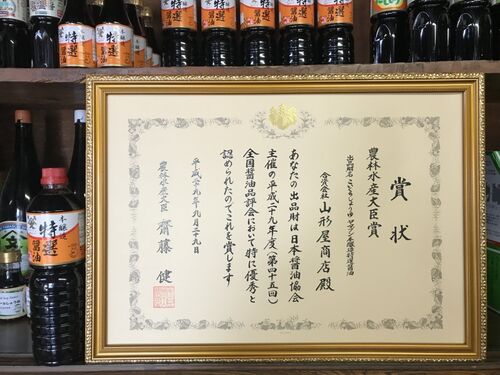 賞状
農林水産大臣賞
合資会社 山形屋商店 殿
あなたの出品財は日本醤油協会
主催の平成二十九年度(第四十五回)
全国醤油品評会において特に優秀と
認められたのでこれを賞します
平成二十九年九月二十九日
農林水産大臣 齋藤 健
特選
醤油
特選
醤油
特選
特選
特選
特選
本醸造
醤油